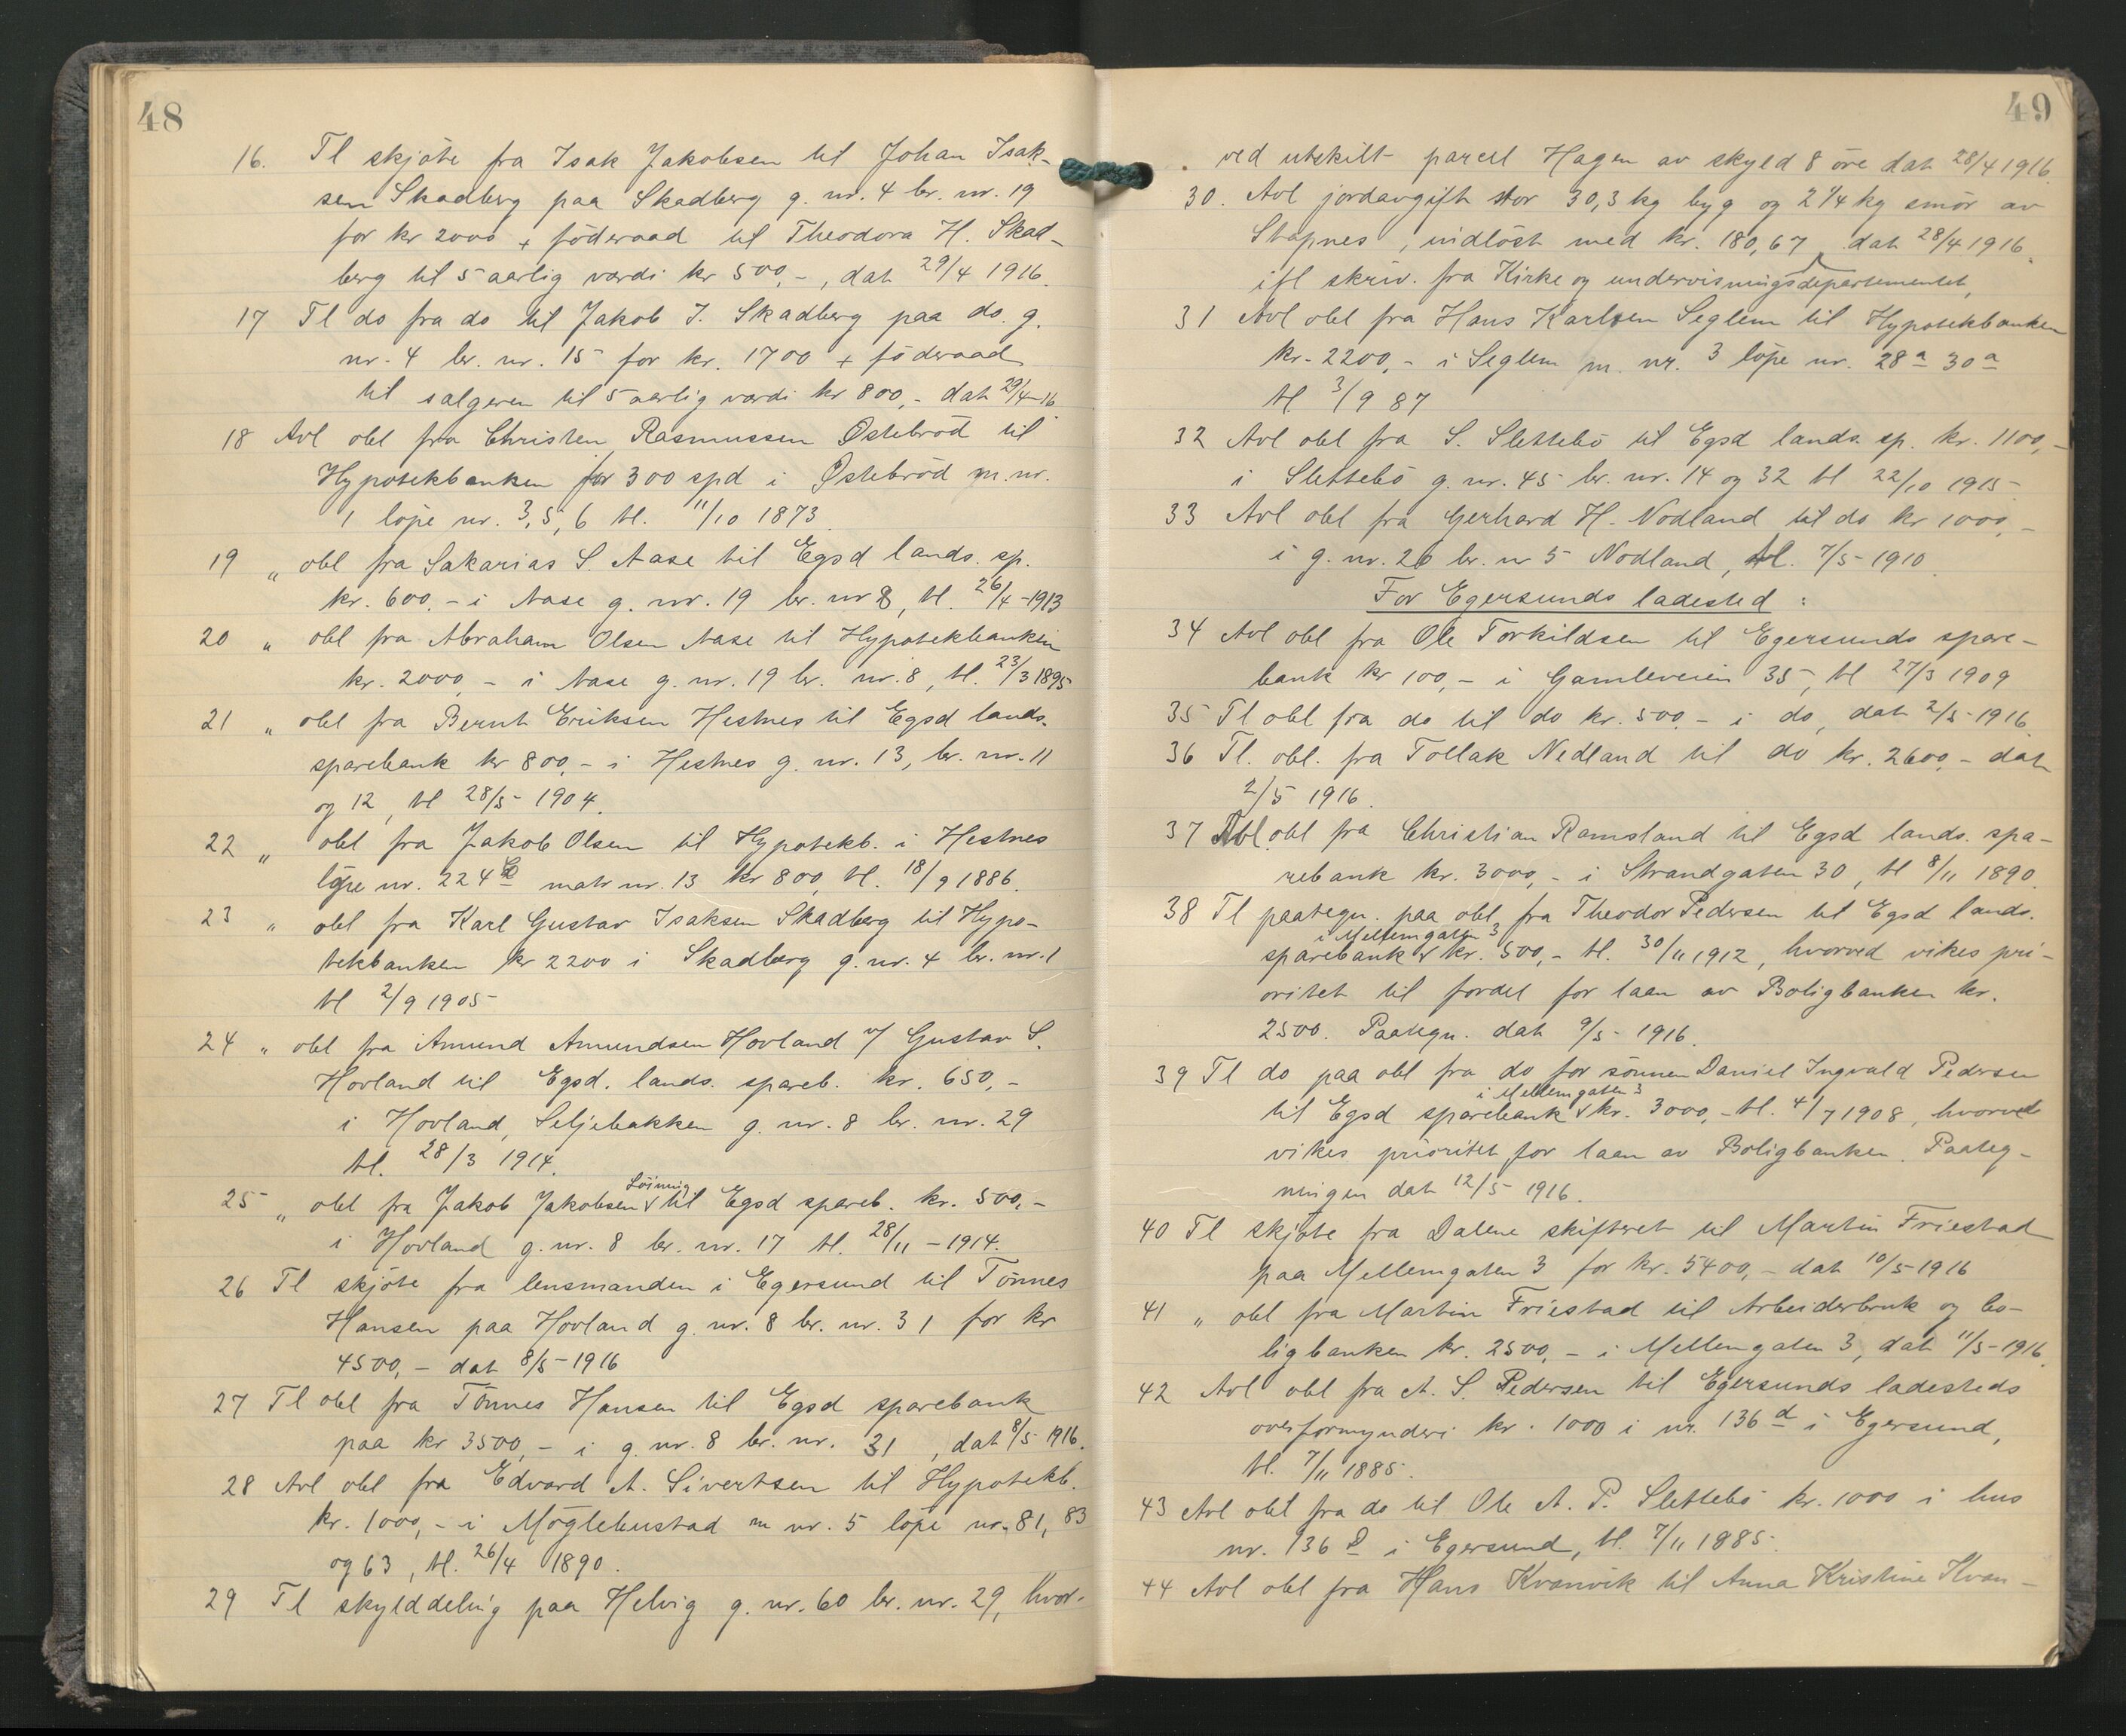 48
16. Tl skjöte fra Isak Jakobsen til Johan Isak-
sen Skadberg paa Skadberg g. nr. 4 br. nr. 19
for kr 2000 + föderaad til Theodora H. Skad-
berg til 5 aarlig værdi kr 500,-, dat 29/4 1916.
17 Tl do fra do til Jakob I. Skadberg paa do. g.
nr. 4 br. nr. 15 for kr. 1700 + föderaad
til sælgeren til 5 aarlig værdi kr 800,- dat 29/4-16
18 Avl obl fra Christen Rasmussen Østebröd til
Hypotekbanken for 300 spd i Østebröd m. nr.
1 löpe nr. 3, 5, 6 tl. 11/10 1873.
19 " obl fra Sakarias S. Aase til Egsd lands. sp.
kr. 600,- i Aase g. nr. 19 br. nr 8, tl. 26/4-1913
20 " obl fra Abraham Olsen Aase til Hypotekbanken
kr. 2000,- i Aase g. nr. 19 br. nr. 8, tl. 23/3 1895
21 " obl fra Bernt Eriksen Hestnes til Egsd lands.
sparebank kr 800,- i Hestnes g. nr. 13, br. nr. 11
og 12, tl 28/5- 1904.
22 " obl fra Jakob Olsen til Hypotekb. i Hestnes
löpe nr. 224 matr nr. 13 kr 800, tl. 18/9 1886.
23 " obl fra Karl Gustav Isaksen Skadberg til Hypo-
tekbanken kr 2200 i Skadberg g. nr. 4 br. nr. 1
tl 2/9 1905
24 " obl fra Amund Amundsen Hovland v/ Gustav S.
Hovland til Egsd. lands. spareb. kr. 650,-
i Hovland, Seljebakken g. nr. 8 br. nr. 29
tl. 28/3 1914.
Löining
25 " obl fra Jakob Jakobsen til Egsd spareb. kr. 500,-
i Hovland g. nr. 8 br. nr. 17 tl. 28/11 - 1914.
26 Tl skjöte fra lensmanden i Egersund til Tönnes
Hansen paa Hovland g. nr. 8 br. nr. 31 for kr
4500,- dat 8/5-1916
27 Tl obl fra Tönnes Hansen til Egsd sparebank
paa kr 3500,- i g. nr. 8 br. nr. 31, dat 8/5 1916.
28 Avl obl fra Edvard A. Sivertsen til Hypotekb.
kr. 1000,- i Möglebustad m nr. 5 löpe nr. 81, 83
og 63, tl. 26/4 1890.
29 Tl skylddeling paa Helvig g. nr. 60 br. nr. 29, hvor-
49
ved utskilt parcel Hagen av skyld 8 öre dat 28/4 1916.
30. Avl jordavgift stor 30,3 kg byg og 2 1/4 kg smör av
Stapnes, indlöst med kr. 180,67 dat 28/4 1916.
ifl skriv. fra Kirke og undervisningsdepartementet,
31 Avl obl fra Hans Karlsen Seglem til Hypotekbanken
kr. 2200,- i Seglem m. nr. 3 löpe nr. 28a 30a
tl. 3/9 87
32 Avl obl fra S. Slettebö til Egsd lands. sp. kr. 1100,-
i Slettebö g. nr. 45 br. nr. 14 og 32 tl 22/10 1915.
33 Avl obl fra Gerhard H. Nodland til do kr 1000,-
i g. nr. 26 br. nr 5 Nodland, tl. 7/5-1910.
For Egersunds ladested:
34 Avl obl fra Ole Torkildsen til Egersunds spare-
bank kr 100,- i Gamleveien 35, tl 27/3 1909
35 Tl obl fra do til do kr. 500,- i do, dat 2/5-1916.
36 Tl. obl. fra Tollak Nedland til do kr. 2600,- dat
2/5 1916.
37 Avl obl fra Christian Ramsland til Egsd lands. spa-
rebank kr. 3000,- i Strandgaten 30, tl 8/11 1890.
38 Tl paategn. paa obl. fra Theodor Pedersen til Egsd lands.
i Mellemgaten 3
sparebank kr. 500,- tl. 30/11 1912, hvorved vikes pri-
oritet til fordel for laan av Boligbanken kr.
2500. Paategn. dat 9/5- 1916.
39 Tl do paa obl fra do for sönnen Daniel Ingvald Pedersen
i Mellemgaten 3
til Egsd sparebank kr. 3000,- tl. 4/7 1908, hvorved
vikes prioritet for laan av Boligbanken. Paateg-
ningen dat 12/5 1916.
40 Tl skjöte fra Dalene skifteret til Martin Friestad
paa Mellemgaten 3 for kr. 5400,- dat 10/5-1916
41 " obl fra Martin Friestad til Arbeiderbruk og bo-
ligbanken kr. 2500,- i Mellemgaten 3, dat 11/5-1916.
42 Avl obl fra A. S. Pedersen til Egersunds ladesteds
overformynderi kr. 1000 i nr. 136 d i Egersund,
tl. 7/11 1885.
43 Avl obl fra do til Ole A. P. Slettebö kr. 1000 i hus
nr. 136 D i Egersund, tl. 7/11 1885.
44 Avl obl fra Hans Kvanvik til Anna Kristine Kvan-